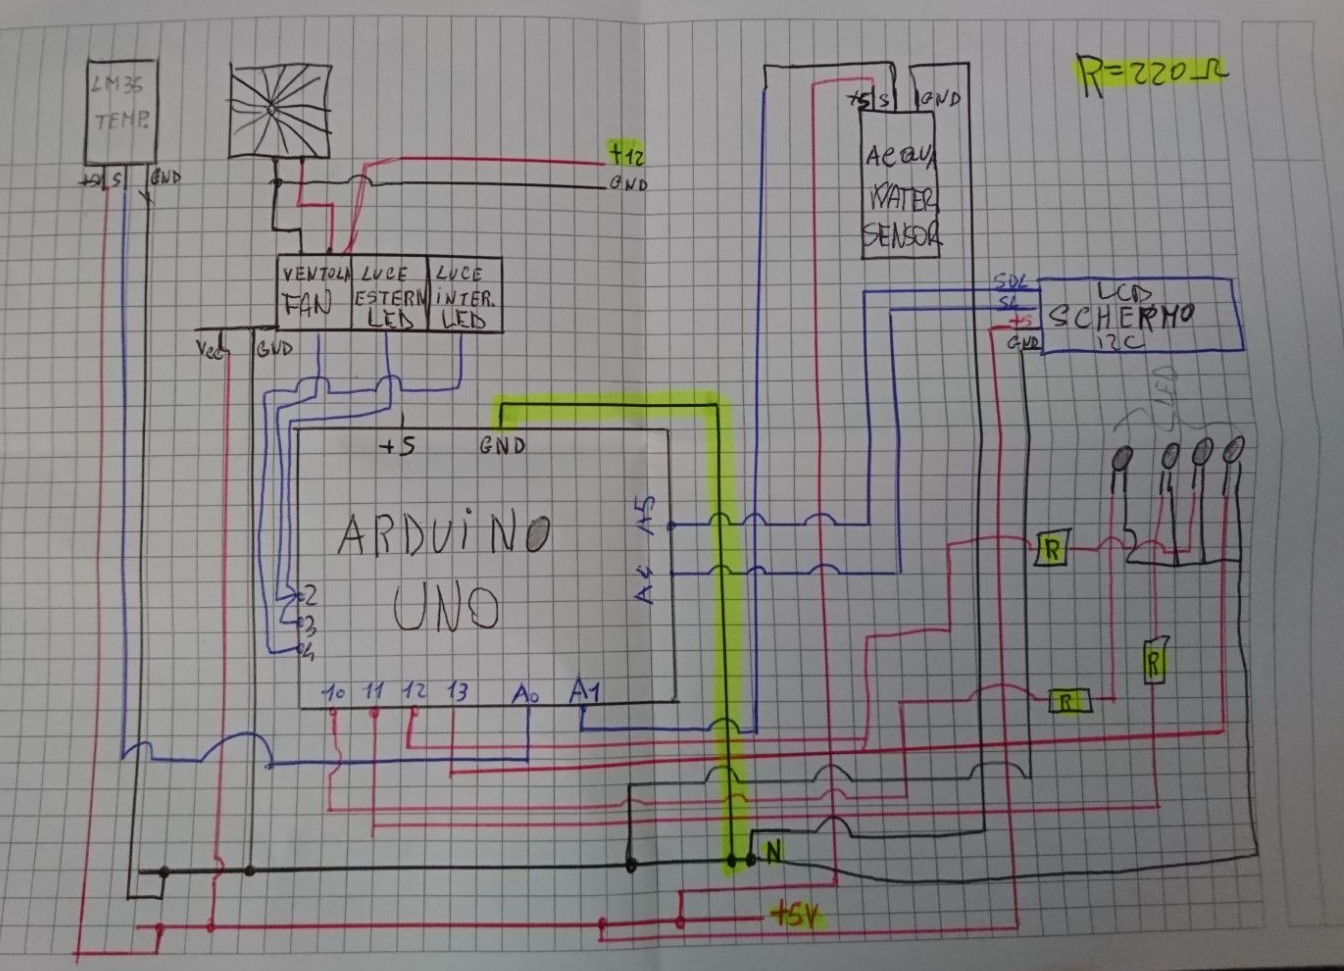 LM35
TEMP.
+5 S GND
+12
GND
+5 S GND
ACQUA
WATER
SENSOR
R=220Ω
VENTOLA
FAN
LUCE
ESTERN
LED
LUCE
INTER.
LED
Vcc GND
SDL
SC
+5
GND
LCD
SCHERMO
I2C
LED
+5 GND
ARDUiNO
UNO
A5
A4
2
3
4
10 11 12 13 A0 A1
R
R
R
N
+5V